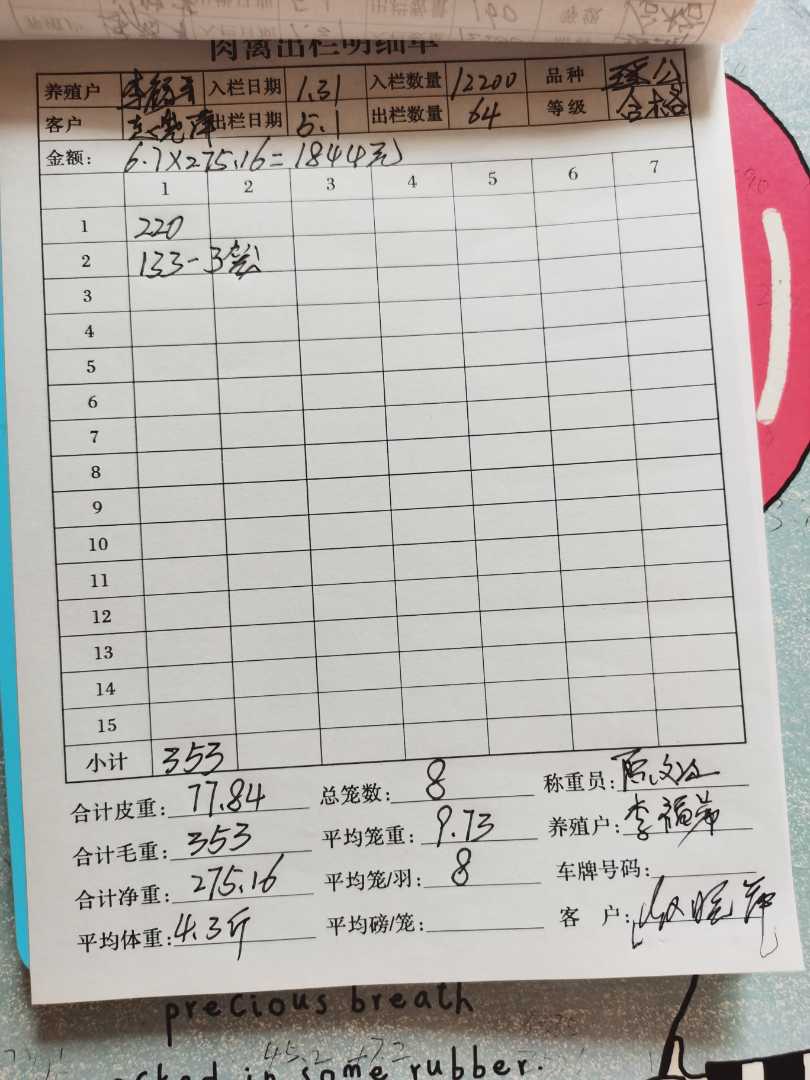 出栏数量 190
合格
肉禽出栏明细单
养殖户 入栏日期 1.31 入栏数量 12200 品种
客户 出栏日期 5.1 出栏数量 64 等级 合格
金额: 6.7×275.16=1844元
1 2 3 4 5 6 7
1 220
2 133-3
3
4
5
6
7
8
9
10
11
12
13
14
15
小计 353
合计皮重: 77.84 总笼数: 8 称重员:
合计毛重: 353 平均笼重: 9.73 养殖户: 李
合计净重: 275.16 平均笼/羽: 8 车牌号码:
平均体重: 4.3斤 平均磅/笼: 客 户:
precious breath
in some rubber.